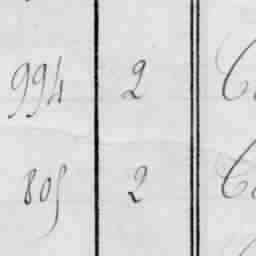 994 2
805 2